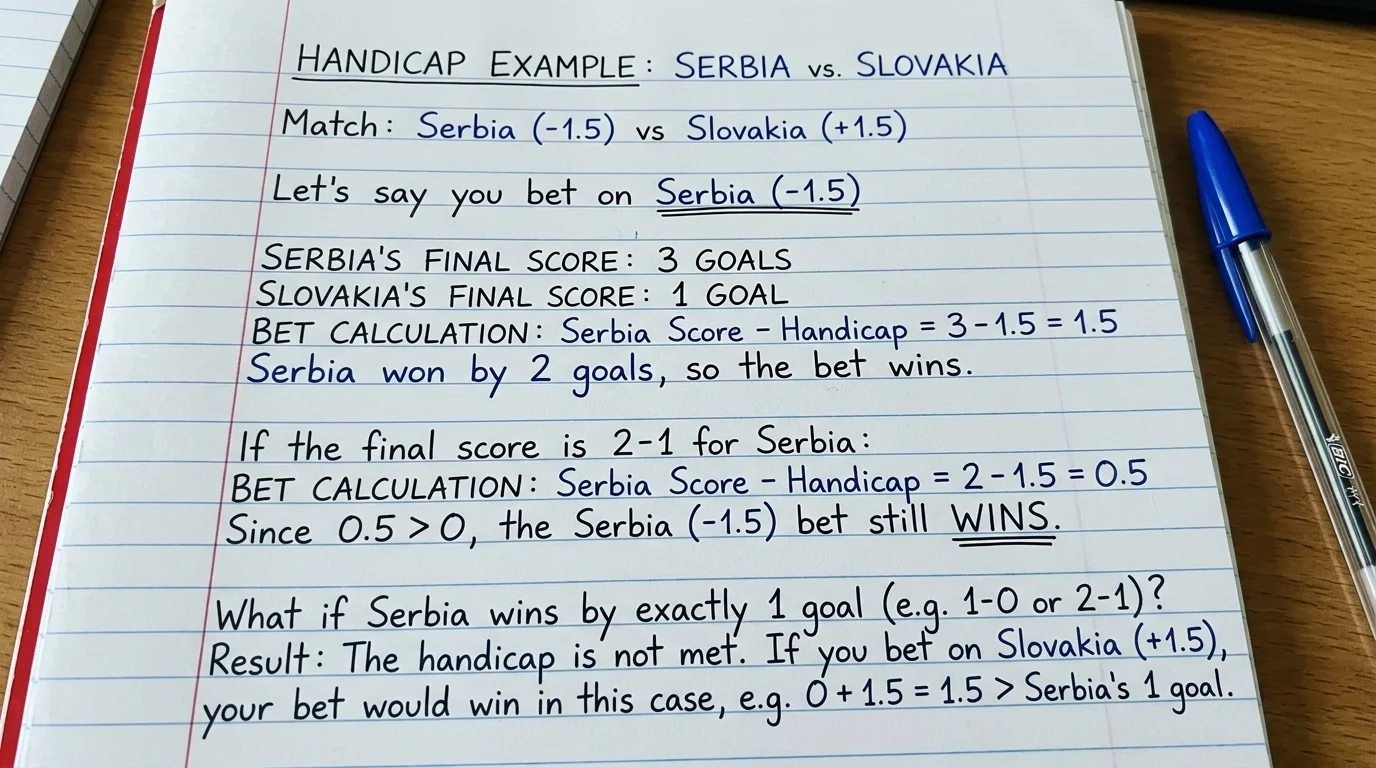 HANDICAP EXAMPLE: SERBIA vs. SLOVAKIA
Match: Serbia (-1.5) vs Slovakia (+1.5)
Let's say you bet on Serbia (-1.5)
SERBIA'S FINAL SCORE: 3 GOALS
SLOVAKIA'S FINAL SCORE: 1 GOAL
BET CALCULATION: Serbia Score - Handicap = 3 - 1.5 = 1.5
Serbia won by 2 goals, so the bet wins.
If the final score is 2-1 for Serbia:
BET CALCULATION: Serbia Score - Handicap = 2 - 1.5 = 0.5
Since 0.5 > 0, the Serbia (-1.5) bet still WINS.
What if Serbia wins by exactly 1 goal (e.g. 1-0 or 2-1)?
Result: The handicap is not met. If you bet on Slovakia (+1.5),
your bet would win in this case, e.g. 0 + 1.5 = 1.5 > Serbia's 1 goal.
BIC